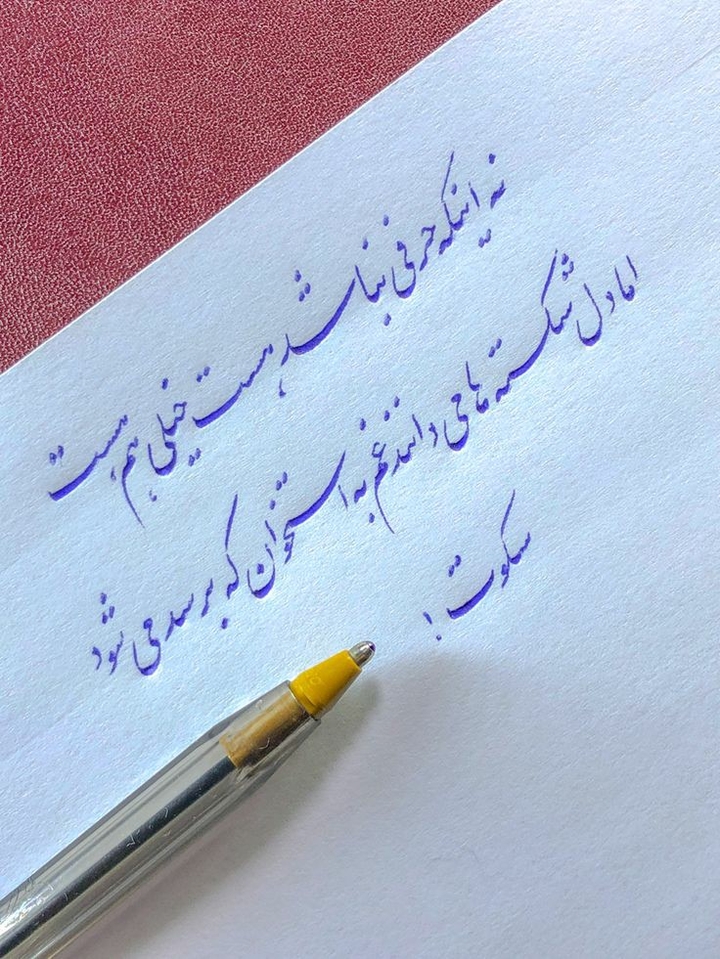 نه اینکه حرفی نباشد هست خیلی هم هست
اما دل شکسته ها می دانند غم به استخوان که برسد می شود
سکوت!